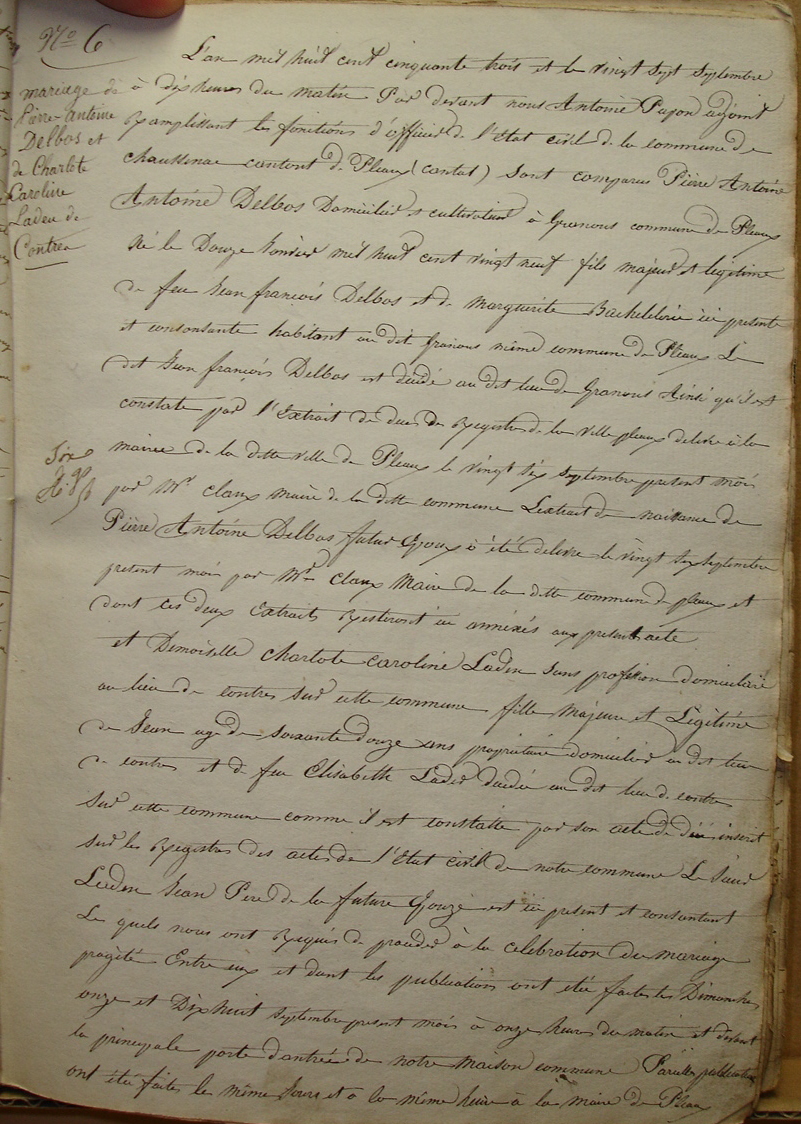 No 6
mariage de
Pierre-antoine
Delbos et
de Charlote
Caroline
Ladeu de
Contres
L'an mil huit cent cinquante trois et le vingt sept septembre
à dix heures du matin Par devant nous Antoine Papon adjoint
Ramplissant les fonctions d'officier de l'Etat civil de la commune de
chaussenac cantont de Pleaux (cantal) Sont comparus Pierre Antoine
Antoine Delbos Domicilié et cultivateur à Granous commune de Pleaux
Né le Douze Janvier mil huit cent vingt neuf fils majeur et legitime
de feu Jean françois Delbos et de Marguerite Bachellerie ici presente
et consentante habitant au dit Granous même commune de Pleaux Le
dit Jean françois Delbos est décédé au dit lieu de Granous Ainsi qu'il est
constate par l'Extrait de deces des Registres de la ville pleaux delivre à la
mairie de la ditte ville de Pleaux le vingt six septembre present mois
par Mr Claux maire de la ditte commune L'extrait de naissance de
Pierre Antoine Delbos futur Epoux à été delivre le vingt six septembre
present mois par Mr Claux Maire de la ditte commune de pleaux et
dont ces deux Extraits Resteront ici annéxés aux present acte
et Demoiselle Charlote Caroline Ladeu sans profession domiciliée
au lieu de contres sur cette commune fille Majeure et Légitime
de Jean agé de soixante douze ans propriétaire domicilié au dit lieu
de contres et de feu Elisabeth Lader décédée au dit lieu de contre
sur cette commune comme il est constatée par son acte de décé inscrit
sur les Registres des actes de l'Etat civil de notre commune Le Sieur
Ladeu Jean Pere de la future Epouze est ici present et consentant
Les quels nous ont Requis de procéder à la célébration du mariage
projété Entre eux et dont les publications ont été faites les Dimanches
onze et Dix huit septembre present mois à onze heures du matin et devant
la principale porte d'antrée de notre Maison commune Pareilles publications
ont été faites les même Jours et a la même heure à la mairie de Pleaux